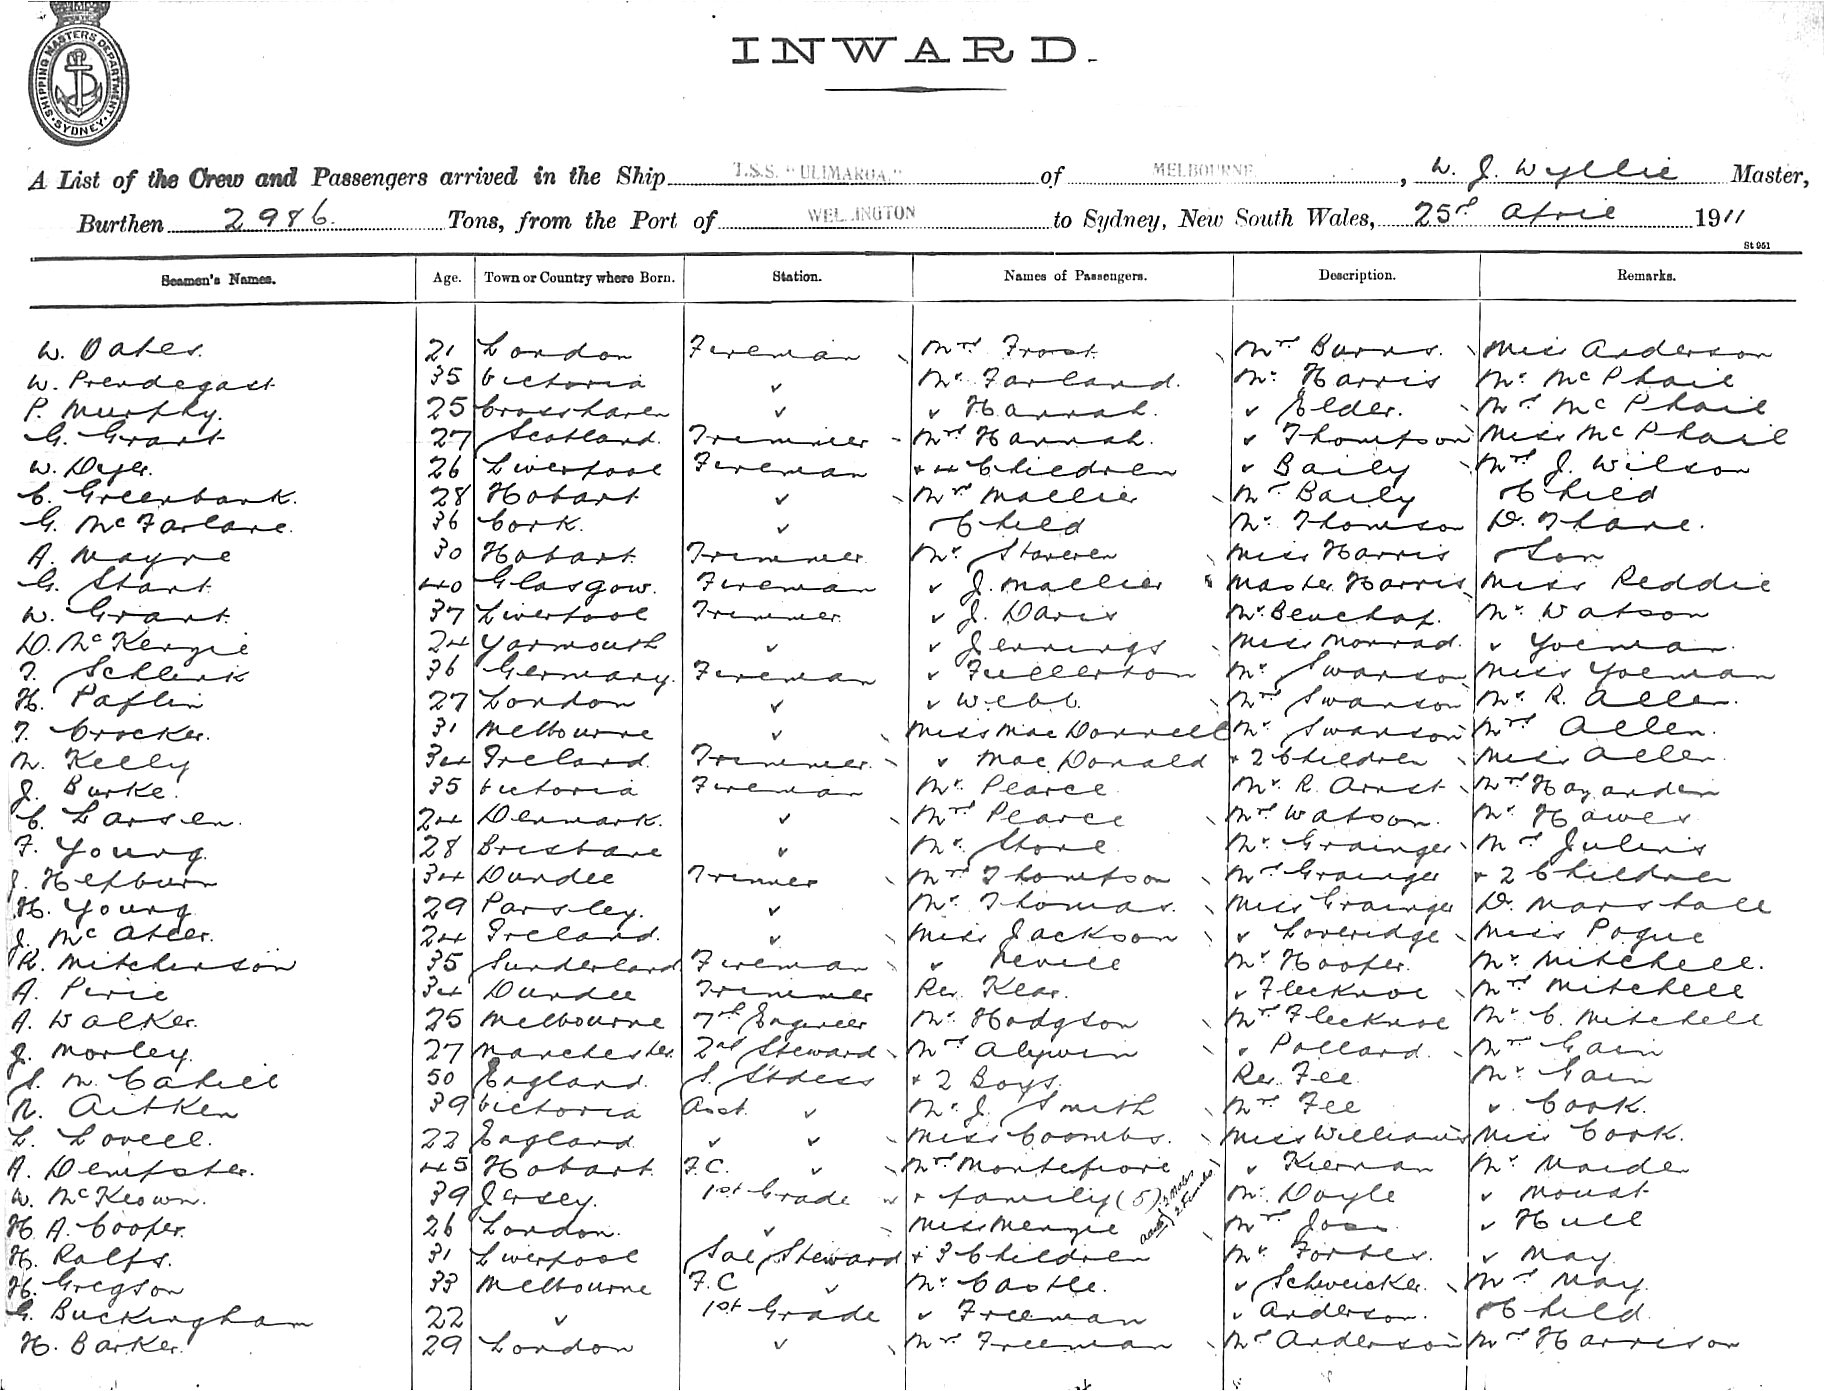 SHIPPING MASTERS DEPARTMENT SYDNEY
INWARD.
A List of the Crew and Passengers arrived in the Ship T.S.S. "ULIMAROA." of MELBOURNE, W. J. Wyllie Master,
Burthen 2986. Tons, from the Port of WELLINGTON to Sydney, New South Wales, 25th April 1911
St 951
Seamen's Names. Age. Town or Country where Born. Station. Names of Passengers. Description. Remarks.
W. Oates. 21 London Fireman Mrs Frost Mrs Burns. Miss Anderson
W. Prendegast 35 Victoria " Mr Farland. Mr Harris Mr McPhail
P. Murphy. 25 Crosshaven " " Hannah. " Elder. Mrs McPhail
G. Grant 27 Scotland. Trimmer Mrs Hannah. " Thompson Miss McPhail
W. Dyer. 26 Liverpool Fireman + 4 Children " Baily Mrs J. Wilson
C. Greenbank. 28 Hobart " Mrs Mallier Mrs Baily Child
G. McFarlane. 36 Cork. " Child Mr Thomson D. Thane.
A. Mayne 30 Hobart Trimmer Mr Staveren Miss Harris Son
G. Start 40 Glasgow. Fireman " J. Mallier Master Harris Miss Reddie
W. Grant 37 Liverpool Trimmer " J. Davis Mr Beuchap. Mr Watson
D. McKenzie 24 Yarmouth " " Jennings Miss Monrad. " Yoeman.
T. Schlink 36 Germany. Fireman " Fullerton Mr Swanson Miss Yoeman
H. Paflin 27 London " " Webb. Mrs Swanson Mr R. Allen.
T. Crocker. 31 Melbourne " Miss MacDonnell Mr Swanson Mrs Allen.
N. Kelly 34 Ireland. Trimmer. " MacDonald + 2 Children Miss Allen.
J. Burke. 35 Victoria Fireman Mr Pearce Mr R. Arnst Mrs Hayarden
C. Larsen. 24 Denmark. " Mrs Pearce Mrs Watson. Mr Hawes
F. Young. 28 Brisbane " Mr Stone Mr Grainger Mrs Julius
J. Hepburn 34 Dundee Trimmer Mrs Thompson Mrs Grainger + 2 Children
H. Young 29 Parsley. " Mr Thomas. Miss Grainger D. Marshall
J. McAteer. 24 Ireland. " Miss Jackson " Loveridge Miss Pogue
R. Mitchinson 35 Sunderland Fireman " Nevill Mr Hooper. Mr Mitchell.
A. Pirie 34 Dundee Trimmer Rev. Kear. " Flecknoe Mrs Mitchell
A. Walker. 25 Melbourne 7th Engineer Mr Hodgson Mrs Flecknoe Mr C. Mitchell
J. Morley. 27 Manchester. 2nd Steward Mrs Alywin " Pollard. Mrs Gain
S. M. Cahill 50 England. S. Stdess + 2 Boys. Rev. Fee Mr Gain
N. Aitken 39 Victoria Asst. " Mr J. Smith Mrs Fee " Cook.
L. Lovell. 22 England. " " Miss Coombs. Miss Williams Miss Cook.
A. Dempster. 45 Hobart F.C. " Mrs Montefiore " Kiernan Mr Maiden
W. McKeown. 39 Jersey. 1st Grade " + family (5) adults 3 males 2 Females Mr Doyle " Moust
H. A. Cooper. 26 London. " Miss Menzie Mrs Joss " Hull
H. Ralfs. 31 Liverpool Sal Steward + 3 Children Mr Forbes. " May
H. Gregson 33 Melbourne F.C " Mr Castle. " Schweicker. Mrs May.
G. Buckingham 22 " 1st Grade " Freeman " Anderson. Child.
H. Barker. 29 London " Mrs Freeman Mrs Anderson Mrs Harrison